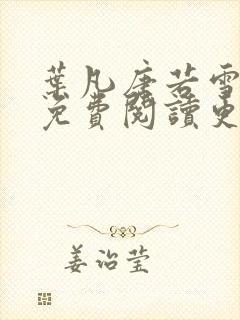 葉凡唐若雪
免費閱讀更
姜治莹